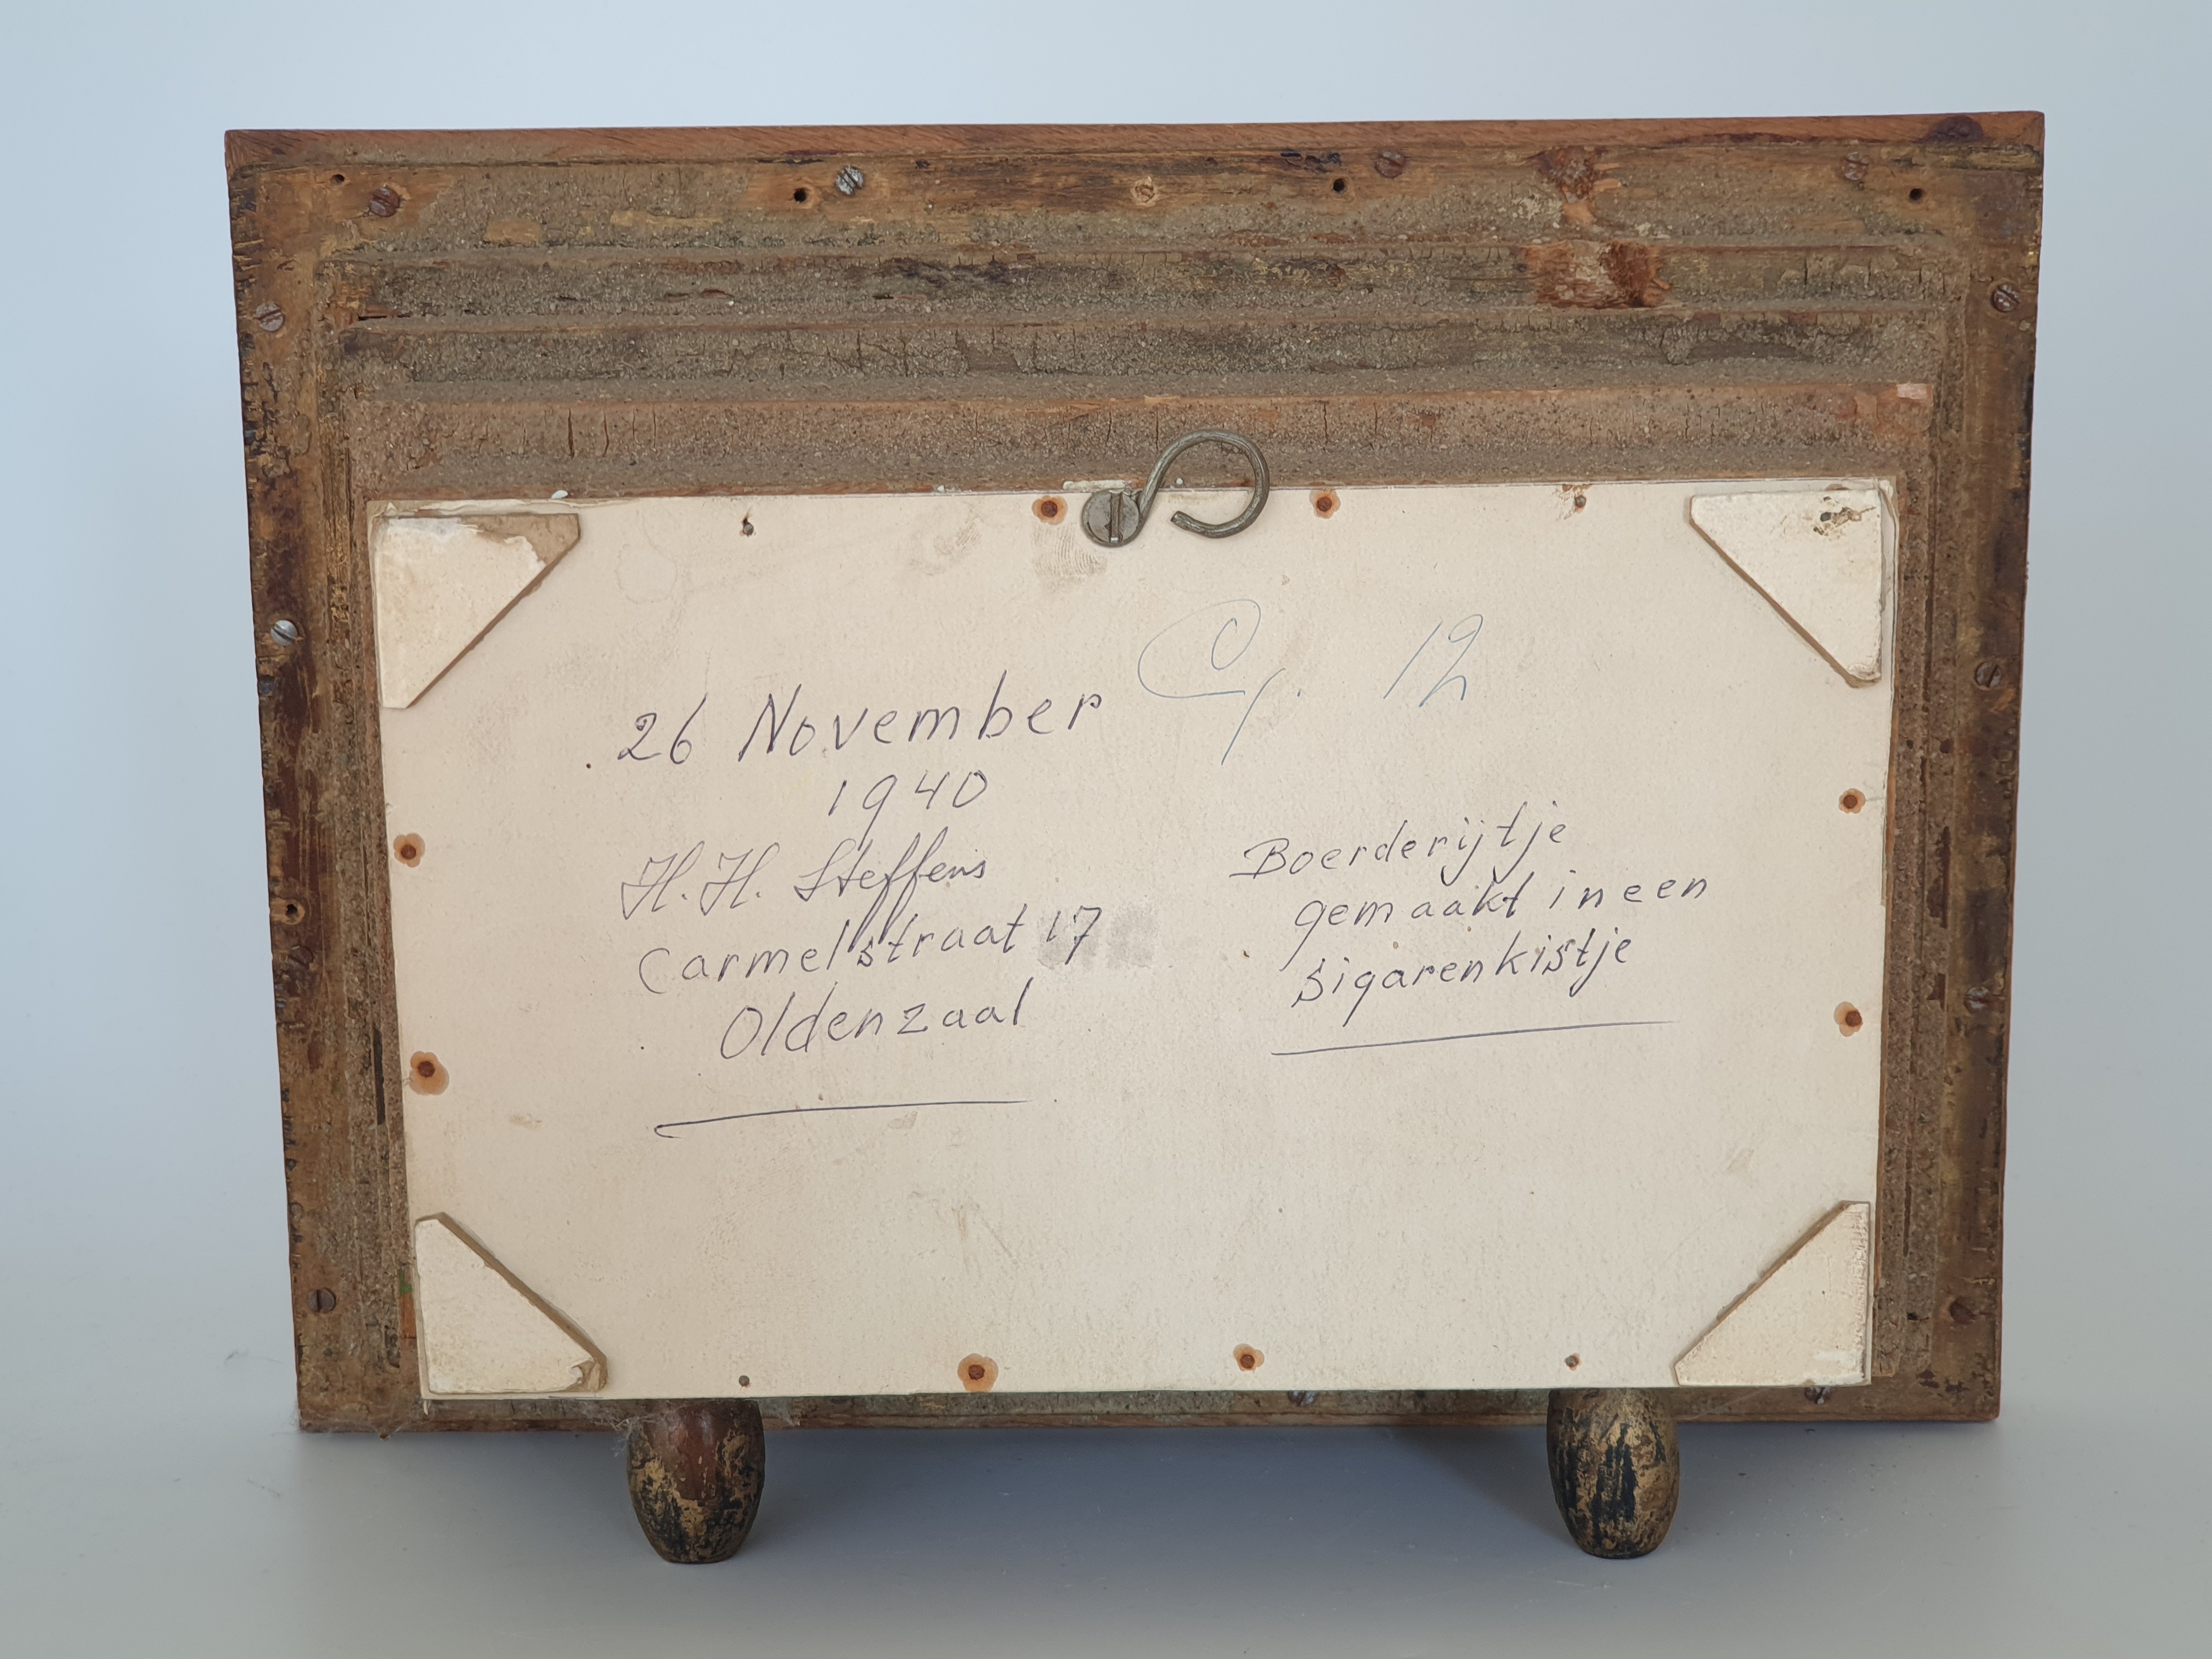 26 November
1940
H. H. Steffens
Carmelstraat 17
Oldenzaal
12
Boerderijtje
gemaakt in een
sigarenkistje